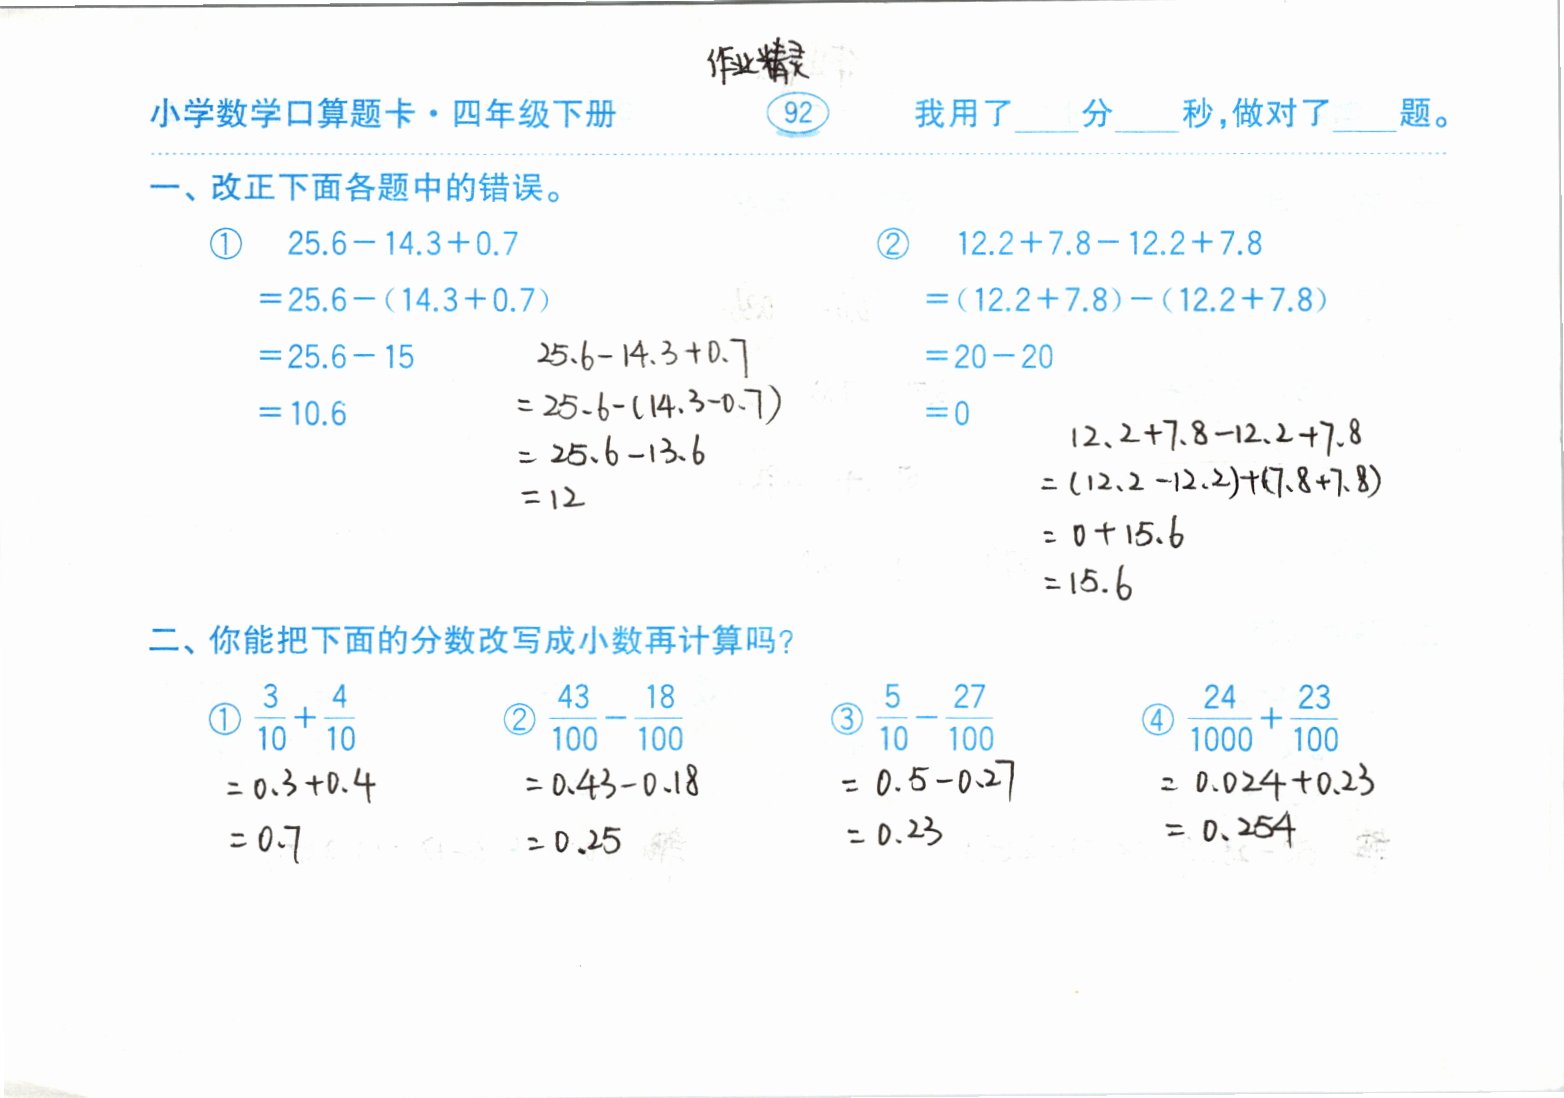 作业精灵
小学数学口算题卡·四年级下册 92 我用了____分____秒,做对了____题。
一、改正下面各题中的错误。
① 25.6－14.3＋0.7
＝25.6－(14.3＋0.7)
＝25.6－15
＝10.6
25.6－14.3＋0.7
＝25.6－(14.3－0.7)
＝25.6－13.6
＝12
② 12.2＋7.8－12.2＋7.8
＝(12.2＋7.8)－(12.2＋7.8)
＝20－20
＝0
12.2＋7.8－12.2＋7.8
＝(12.2－12.2)＋(7.8＋7.8)
＝0＋15.6
＝15.6
二、你能把下面的分数改写成小数再计算吗?
① 3/10＋4/10
＝0.3＋0.4
＝0.7
② 43/100－18/100
＝0.43－0.18
＝0.25
③ 5/10－27/100
＝0.5－0.27
＝0.23
④ 24/1000＋23/100
＝0.024＋0.23
＝0.254